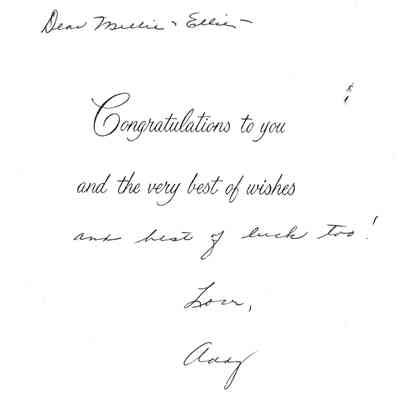 Dear Millie & Ellis -
Congratulations to you
and the very best of wishes
and best of luck too!
Love,